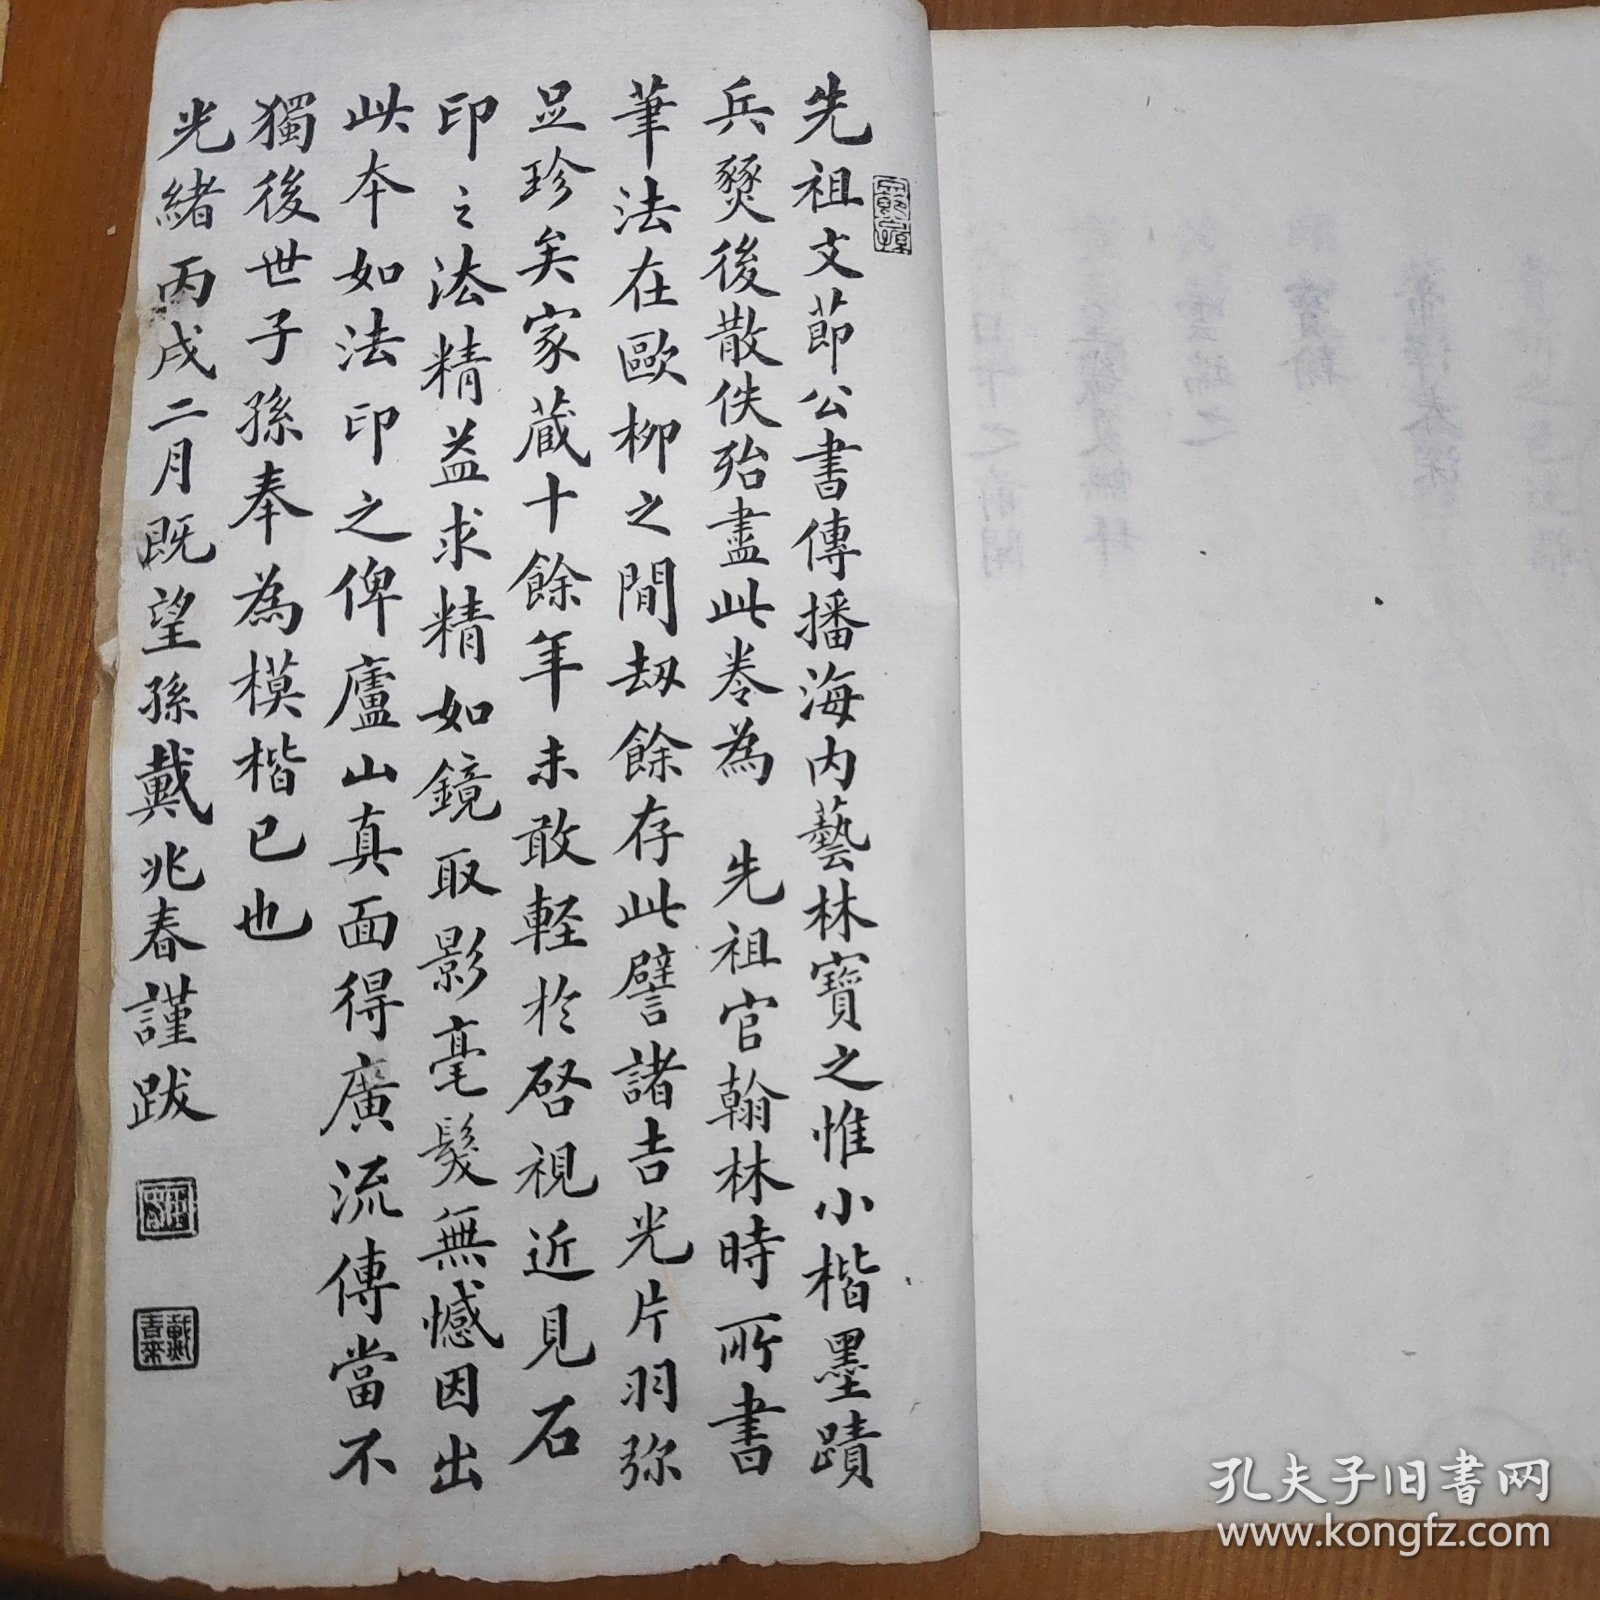 先祖文節公書傳播海内藝林寶之惟小楷墨蹟
兵燹後散佚殆盡此卷為 先祖官翰林時所書
筆法在歐柳之間刼餘存此譬諸吉光片羽弥
足珍矣家藏十餘年未敢輕於啓視近見石
印之法精益求精如鏡取影毫髮無憾因出
此本如法印之俾廬山真面得廣流傳當不
獨後世子孫奉為模楷已也
光緒丙戌二月既望孫戴兆春謹跋
孔夫子旧书网
www.kongfz.com